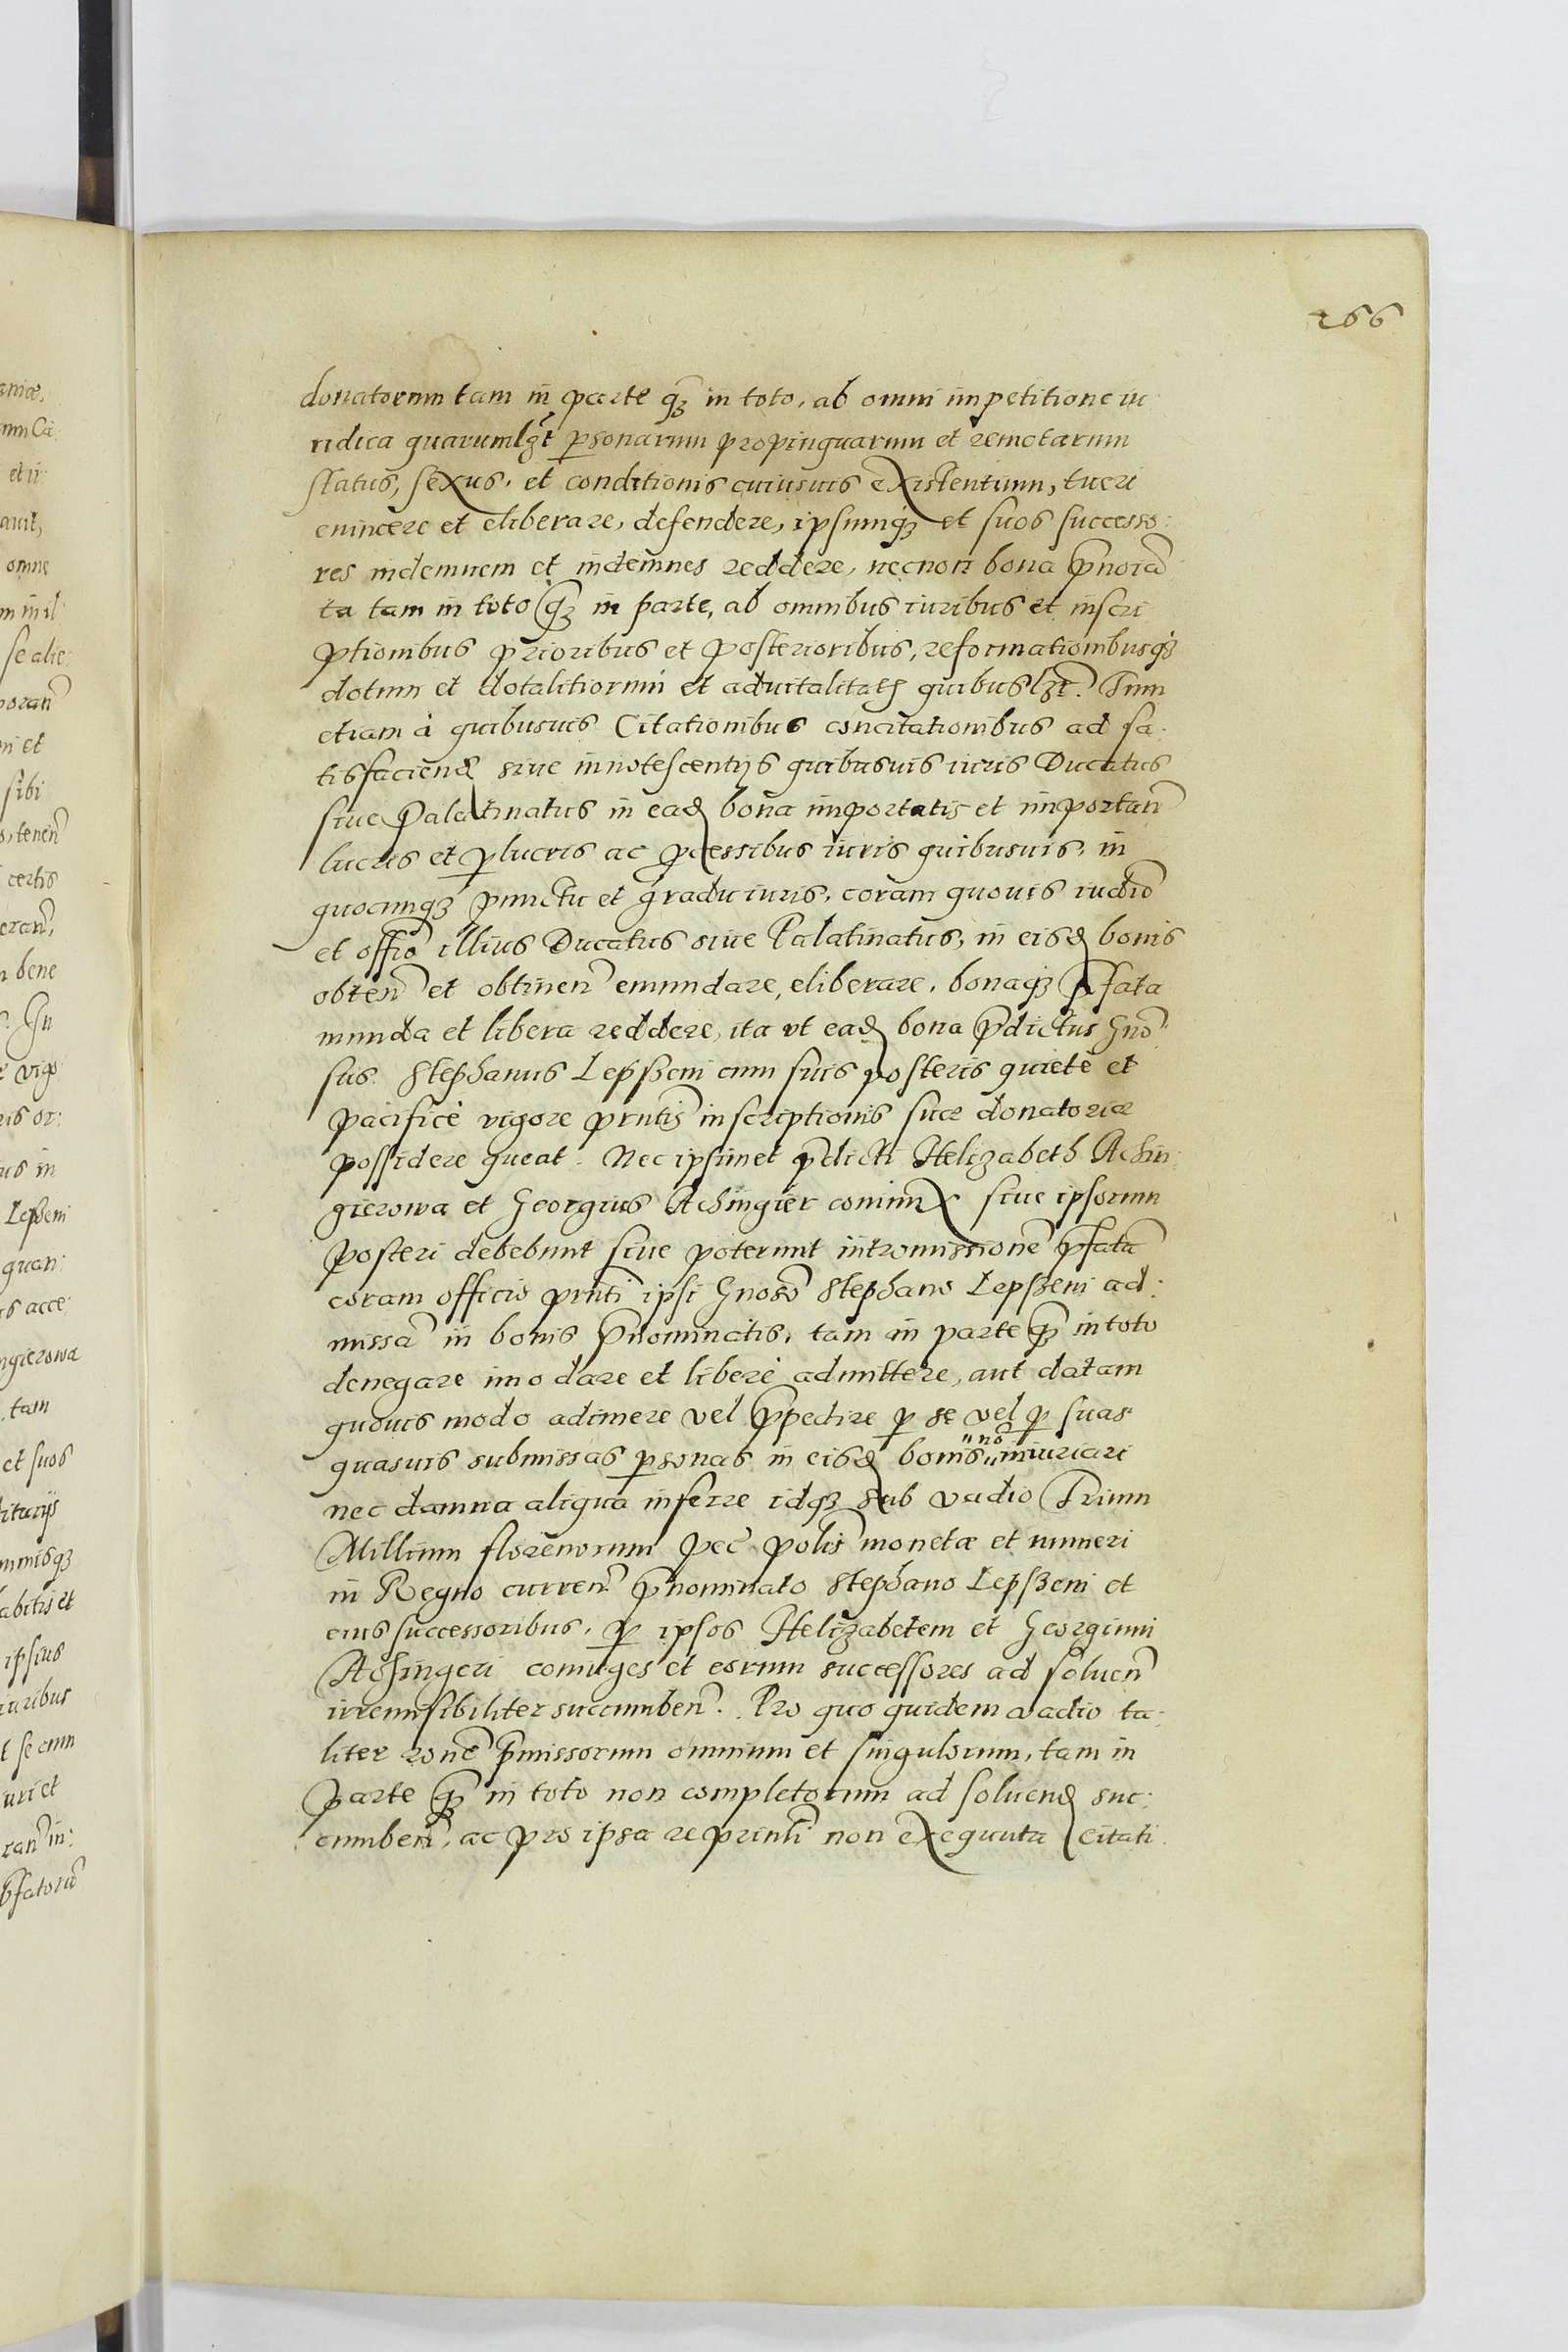 266
donatorum tam in parte q̃ꝫ in toto, ab omni impetitione iu
ridica quarumlꝫt ꝑsonarum propinquarum et remotarum
status, sexus, et conditionis cuiusuis existentium, tueri
euincere et eliberare, defendere, ipsumqꝫ et suos successo:
res indemnem et indemnes reddere, necnon bona p̃noīa
ta tam in toto q̃ꝫ in parte, ab omnibus iuribus et inscri
ptionibus prioribus et posterioribus, reformationibusqꝫ
dotum et dotalitiorum et aduitalitatꝭ quibuslꝫt. Tum
etiam à quibusuis Citationibus concitationibus ad sa.
tisfaciend̃ siue innotescentijs quibusuis iuris Ducatus
siue Palatinatus in ead̃ bona importatis et importañ
lucris et ꝑlucris ac ꝓcessibus iuris quibusuis, in
quocunqꝫ punctu et gradu iuris, coram quouis iudiō
et offiō illius Ducatus siue Palatinatus, in eisd̃ bonis
obteñ et obtineñ emundare, eliberare, bonaqꝫ p̃fata
munda et libera reddere, ita vt ead̃ bona p̃dictus Gno
sus Stephanus Lepßeni cum suis posteris quietè et
pacificè vigore pr̃ntis inscriptionis suæ donatoriæ
possidere queat. Nec ipsimet p̃dicti Helizabeth Achin:
gierowa et Georgius Achingier coniunx siue ipsorum
posteri debebunt siue poterunt intromissionẽ p̃fatã
coram officio pr̃nti ipsi Gnosõ Stephano Lepßeni ad:
missã in bonis p̃nominatis, tam in parte q̃ꝫ in toto
denegare imo dare et liberè admittere, aut datam
quouis modo adimere vel p̃pedire ꝑ se vel ꝑ suas
quasuis submissas ꝑsonas in eisd̃ bonis "nõ" iniuriari
nec damna aliqua inferre idqꝫ sub vadio Trium
Millium florenorum pec̃ polis̃ monetæ et numeri
in Regno curreñ p̃nominato Stephano Lepßeni et
eius successoribus, ꝑ ipsos Helizabetem et Georgium
Achingeri coniuges et eorum successores ad solueñ
irremisibiliter succumbeñ. Pro quo quidem vadio ta:
liter rõne p̃missorum omnium et singulorum, tam in
parte q̃ꝫ in toto non completorum ad soluend̃ suc:
cumbeñ, ac pro ipsa re prin̄li non exequuta citati